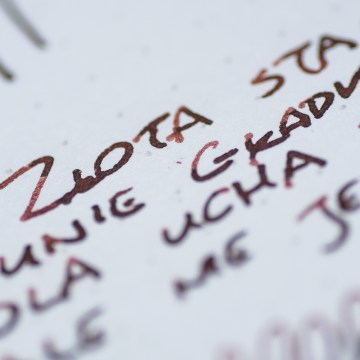 ZŁOTA STA
UNIE GRADU
OLA UCHA
ALE ME JE